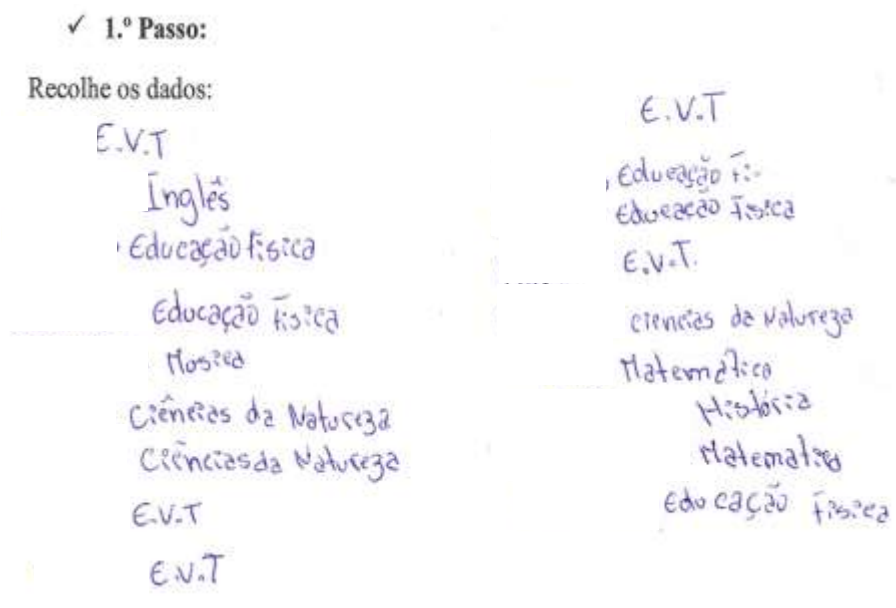 ✓ 1.º Passo:
Recolhe os dados:
E.V.T
Inglês
Educação física
Educação Física
Mosica
Ciências da Natureza
Ciências da Natureza
E.V.T
E.V.T
E.V.T
Educação Fi-
Educação Física
E.V.T.
ciencias da Natureza
Matemática
História
Matematica
Educação Física